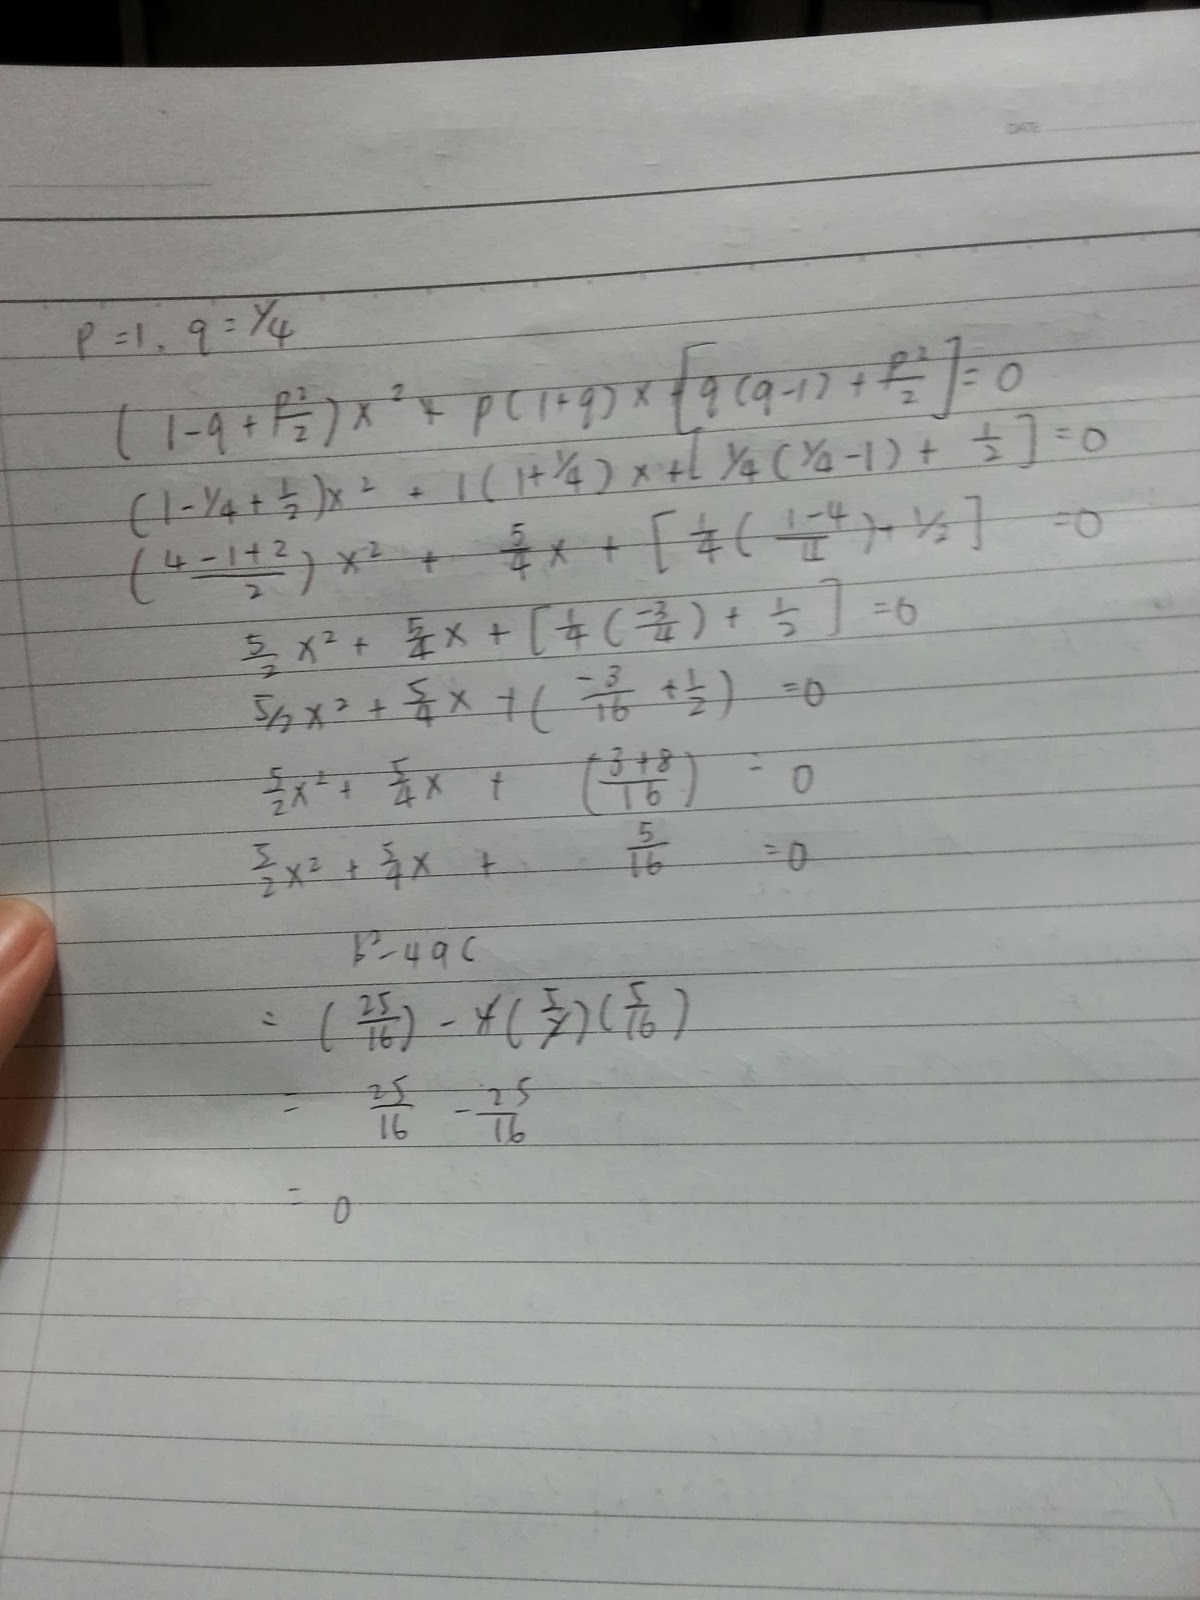 DATE
p = 1, q = 1/4
(1 - q + p²/2) x² + p(1+q) x + [q(q-1) + p²/2] = 0
(1 - 1/4 + 1/2) x² + 1(1 + 1/4) x + [1/4 (1/4 - 1) + 1/2] = 0
((4 - 1 + 2)/2) x² + 5/4 x + [1/4 ((1-4)/4) + 1/2] = 0
5/2 x² + 5/4 x + [1/4 (-3/4) + 1/2] = 0
5/2 x² + 5/4 x + (-3/16 + 1/2) = 0
5/2 x² + 5/4 x + ((3+8)/16) = 0
5/2 x² + 5/4 x + 5/16 = 0
b² - 4ac
= (25/16) - 4(5/2)(5/16)
= 25/16 - 25/16
= 0